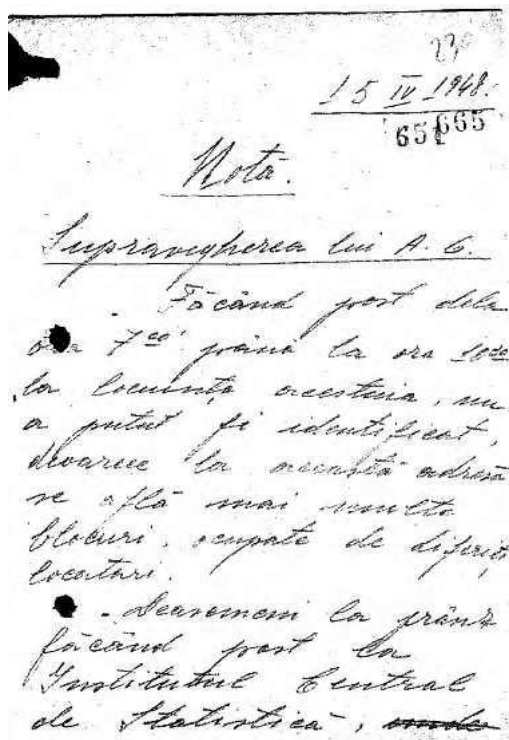 230
15 IV 1948.
665
Notă.
Supravegherea lui A. G.
- Făcând post dela
ora 7⁰⁰ până la ora 10⁰⁰
la locuința acestuia, nu
a putut fi identificat,
deoarece la această adresă
se află mai multe
blocuri, ocupate de diferiți
locatari.
- Deasemeni la prânz
făcând post la
Institutul Central
de Statistică,